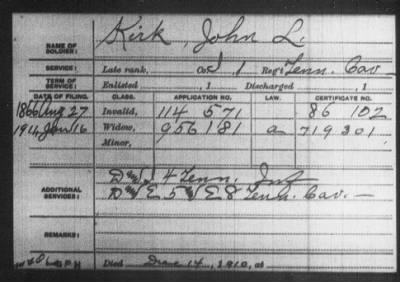 NAME OF SOLDIER: Kirk, John L.
SERVICE: Late rank, Co. I, 1 Reg't Tenn. Cav
TERM OF SERVICE: Enlisted , 1 Discharged , 1
DATE OF FILING. CLASS. APPLICATION NO. LAW. CERTIFICATE NO.
1866 Aug 27 Invalid, 114 571 86 102
1911 Jan 16 Widow, 956 181 a 719 301
Minor,
ADDITIONAL SERVICES: 4 Tenn. Inf
E 5 E 8 Tenn. Cav.
REMARKS:
Died Dec 14, 1910, at